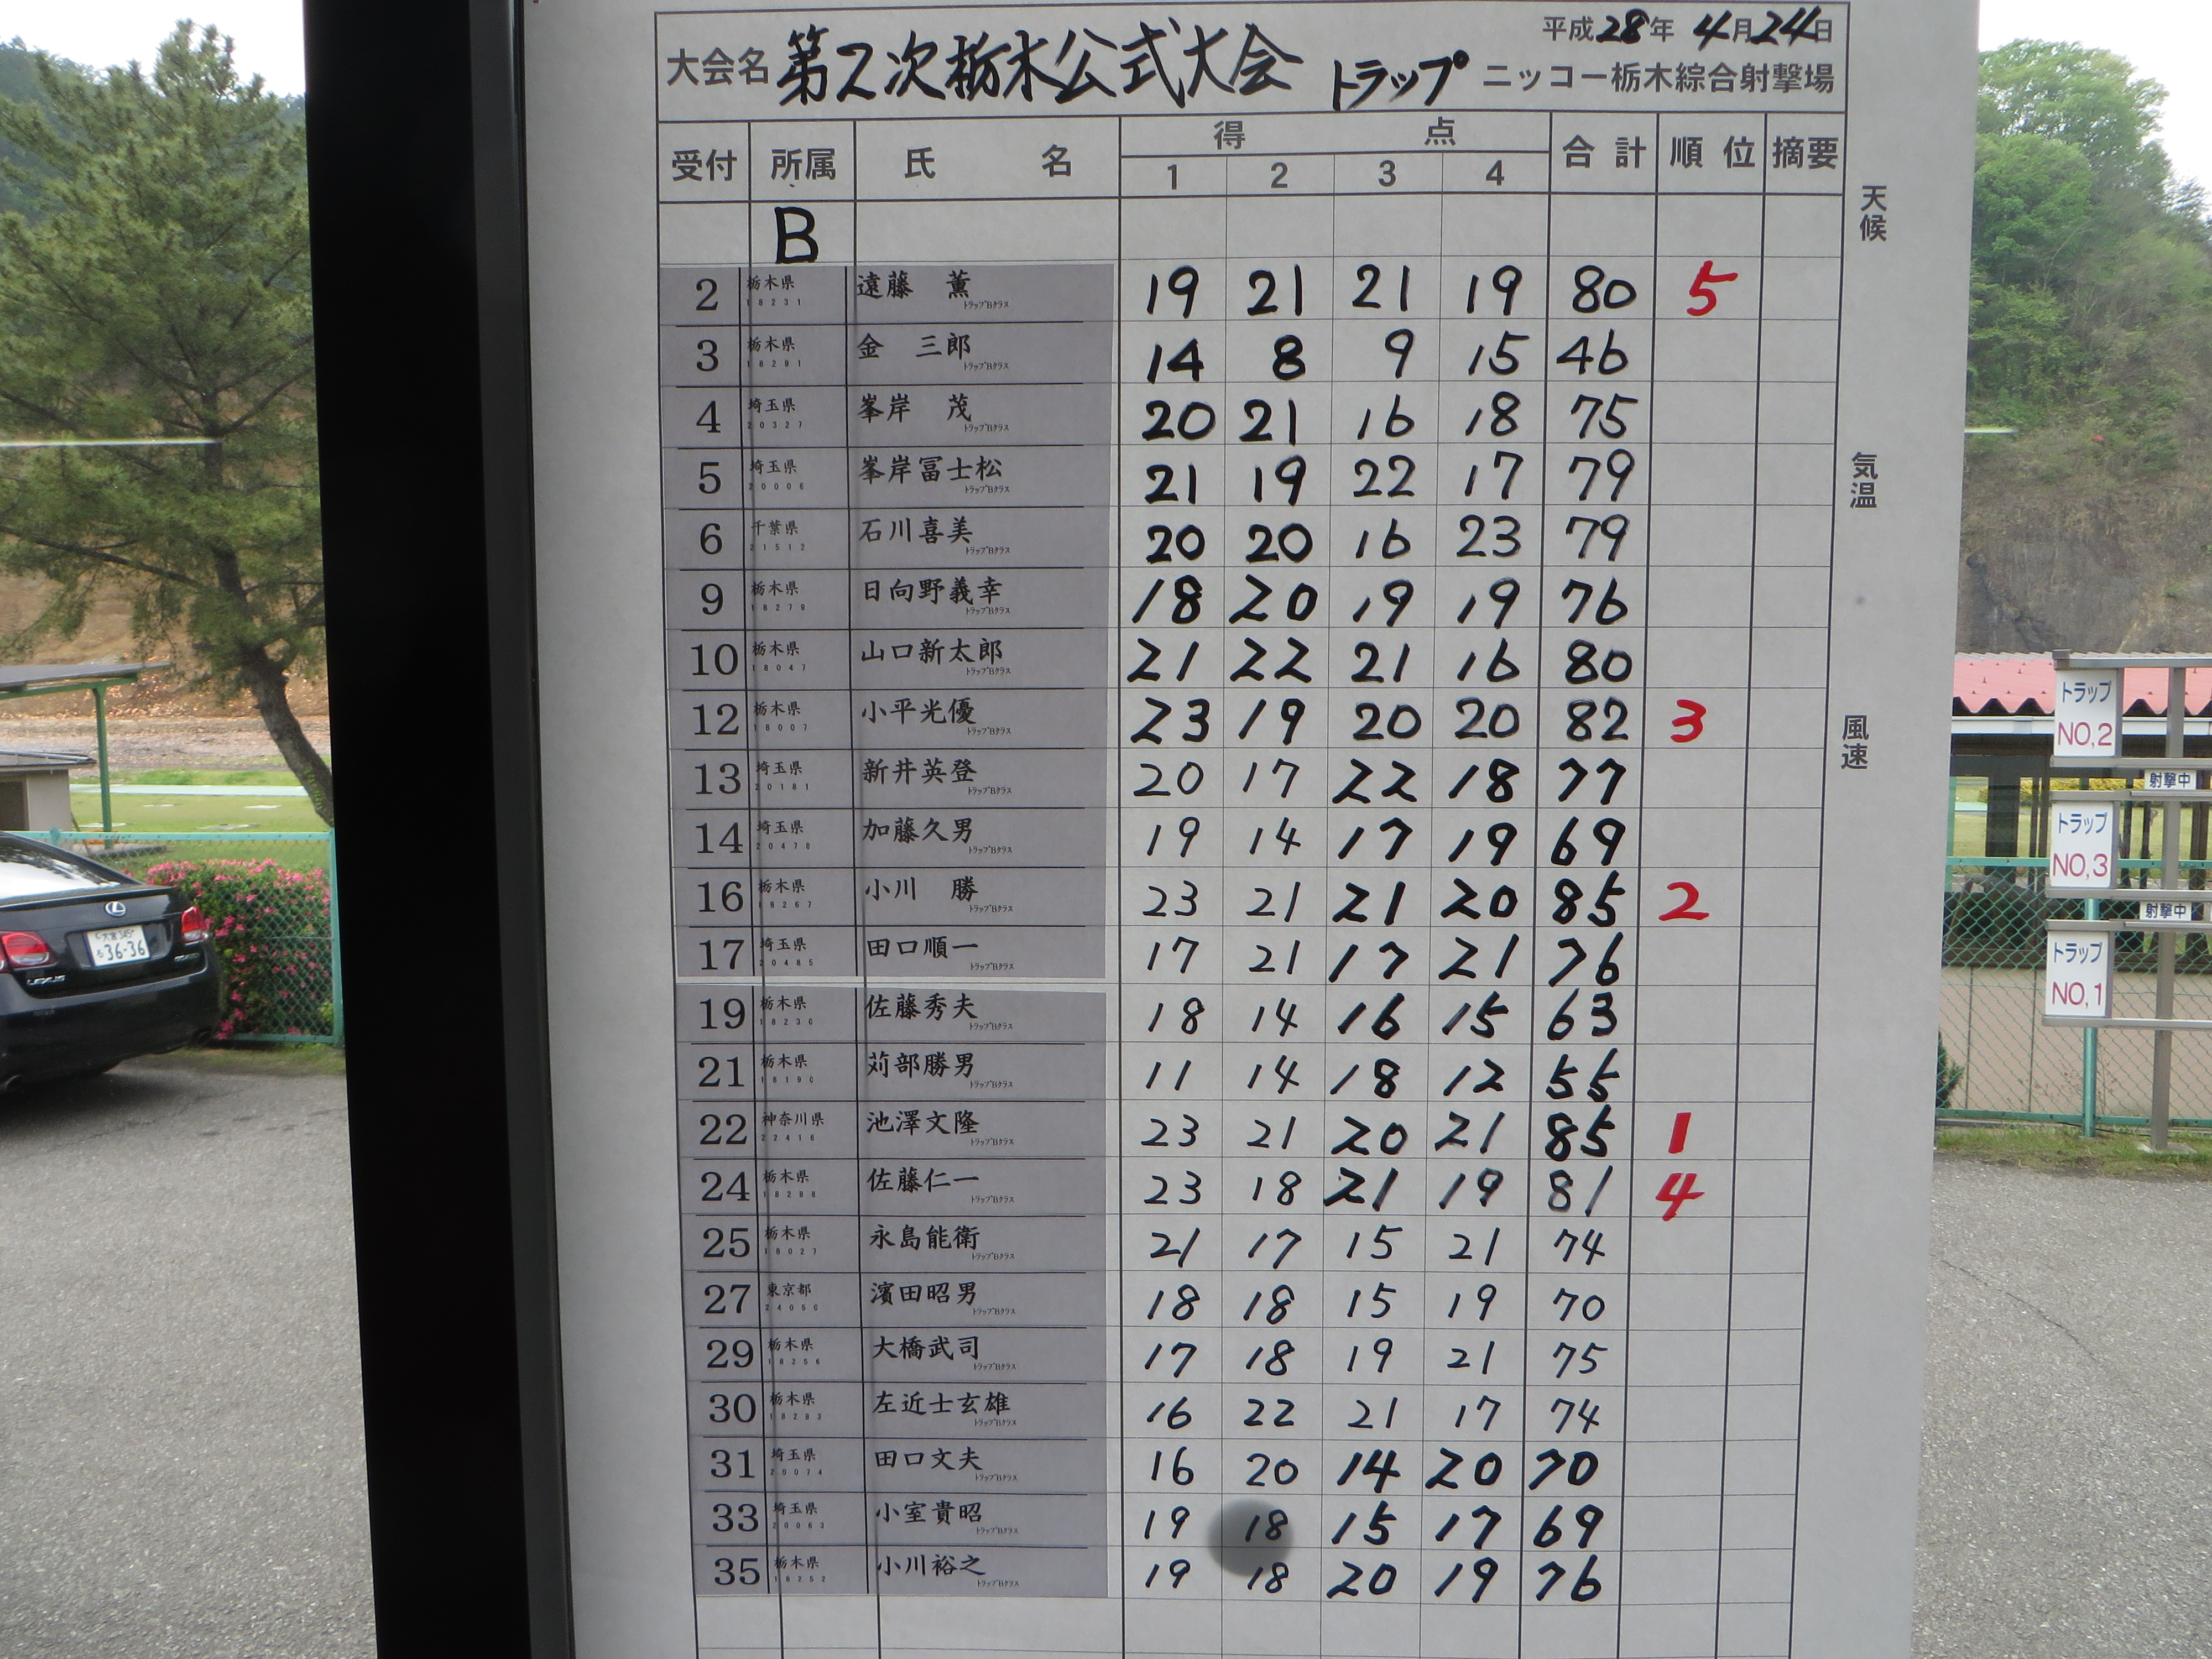 平成28年 4月24日
大会名 第2次栃木公式大会 トラップ ニッコー栃木綜合射撃場
受付 所属 氏 名 得 点 合 計 順 位 摘要
1 2 3 4
B
2 栃木県 18231 遠藤 薫 トラップBクラス 19 21 21 19 80 5
3 栃木県 18291 金 三郎 トラップBクラス 14 8 9 15 46
4 埼玉県 20327 峯岸 茂 トラップBクラス 20 21 16 18 75
5 埼玉県 20006 峯岸冨士松 トラップBクラス 21 19 22 17 79
6 千葉県 21512 石川喜美 トラップBクラス 20 20 16 23 79
9 栃木県 18279 日向野義幸 トラップBクラス 18 20 19 19 76
10 栃木県 18047 山口新太郎 トラップBクラス 21 22 21 16 80
12 栃木県 18007 小平光優 トラップBクラス 23 19 20 20 82 3
13 埼玉県 20181 新井英登 トラップBクラス 20 17 22 18 77
14 埼玉県 20478 加藤久男 トラップBクラス 19 14 17 19 69
16 栃木県 18267 小川 勝 トラップBクラス 23 21 21 20 85 2
17 埼玉県 20485 田口順一 トラップBクラス 17 21 17 21 76
19 栃木県 18230 佐藤秀夫 トラップBクラス 18 14 16 15 63
21 栃木県 18190 苅部勝男 トラップBクラス 11 14 18 12 55
22 神奈川県 22416 池澤文隆 トラップBクラス 23 21 20 21 85 1
24 栃木県 18288 佐藤仁一 トラップBクラス 23 18 21 19 81 4
25 栃木県 18027 永島能衛 トラップBクラス 21 17 15 21 74
27 東京都 24050 濱田昭男 トラップBクラス 18 18 15 19 70
29 栃木県 18256 大橋武司 トラップBクラス 17 18 19 21 75
30 栃木県 18283 左近士玄雄 トラップBクラス 16 22 21 17 74
31 埼玉県 20074 田口文夫 トラップBクラス 16 20 14 20 70
33 埼玉県 20063 小室貴昭 トラップBクラス 19 18 15 17 69
35 栃木県 18252 小川裕之 トラップBクラス 19 18 20 19 76
天候
気温
風速
トラップ
NO,2
射撃中
トラップ
NO,3
射撃中
トラップ
NO,1
大宮 345
36-36
LEXUS